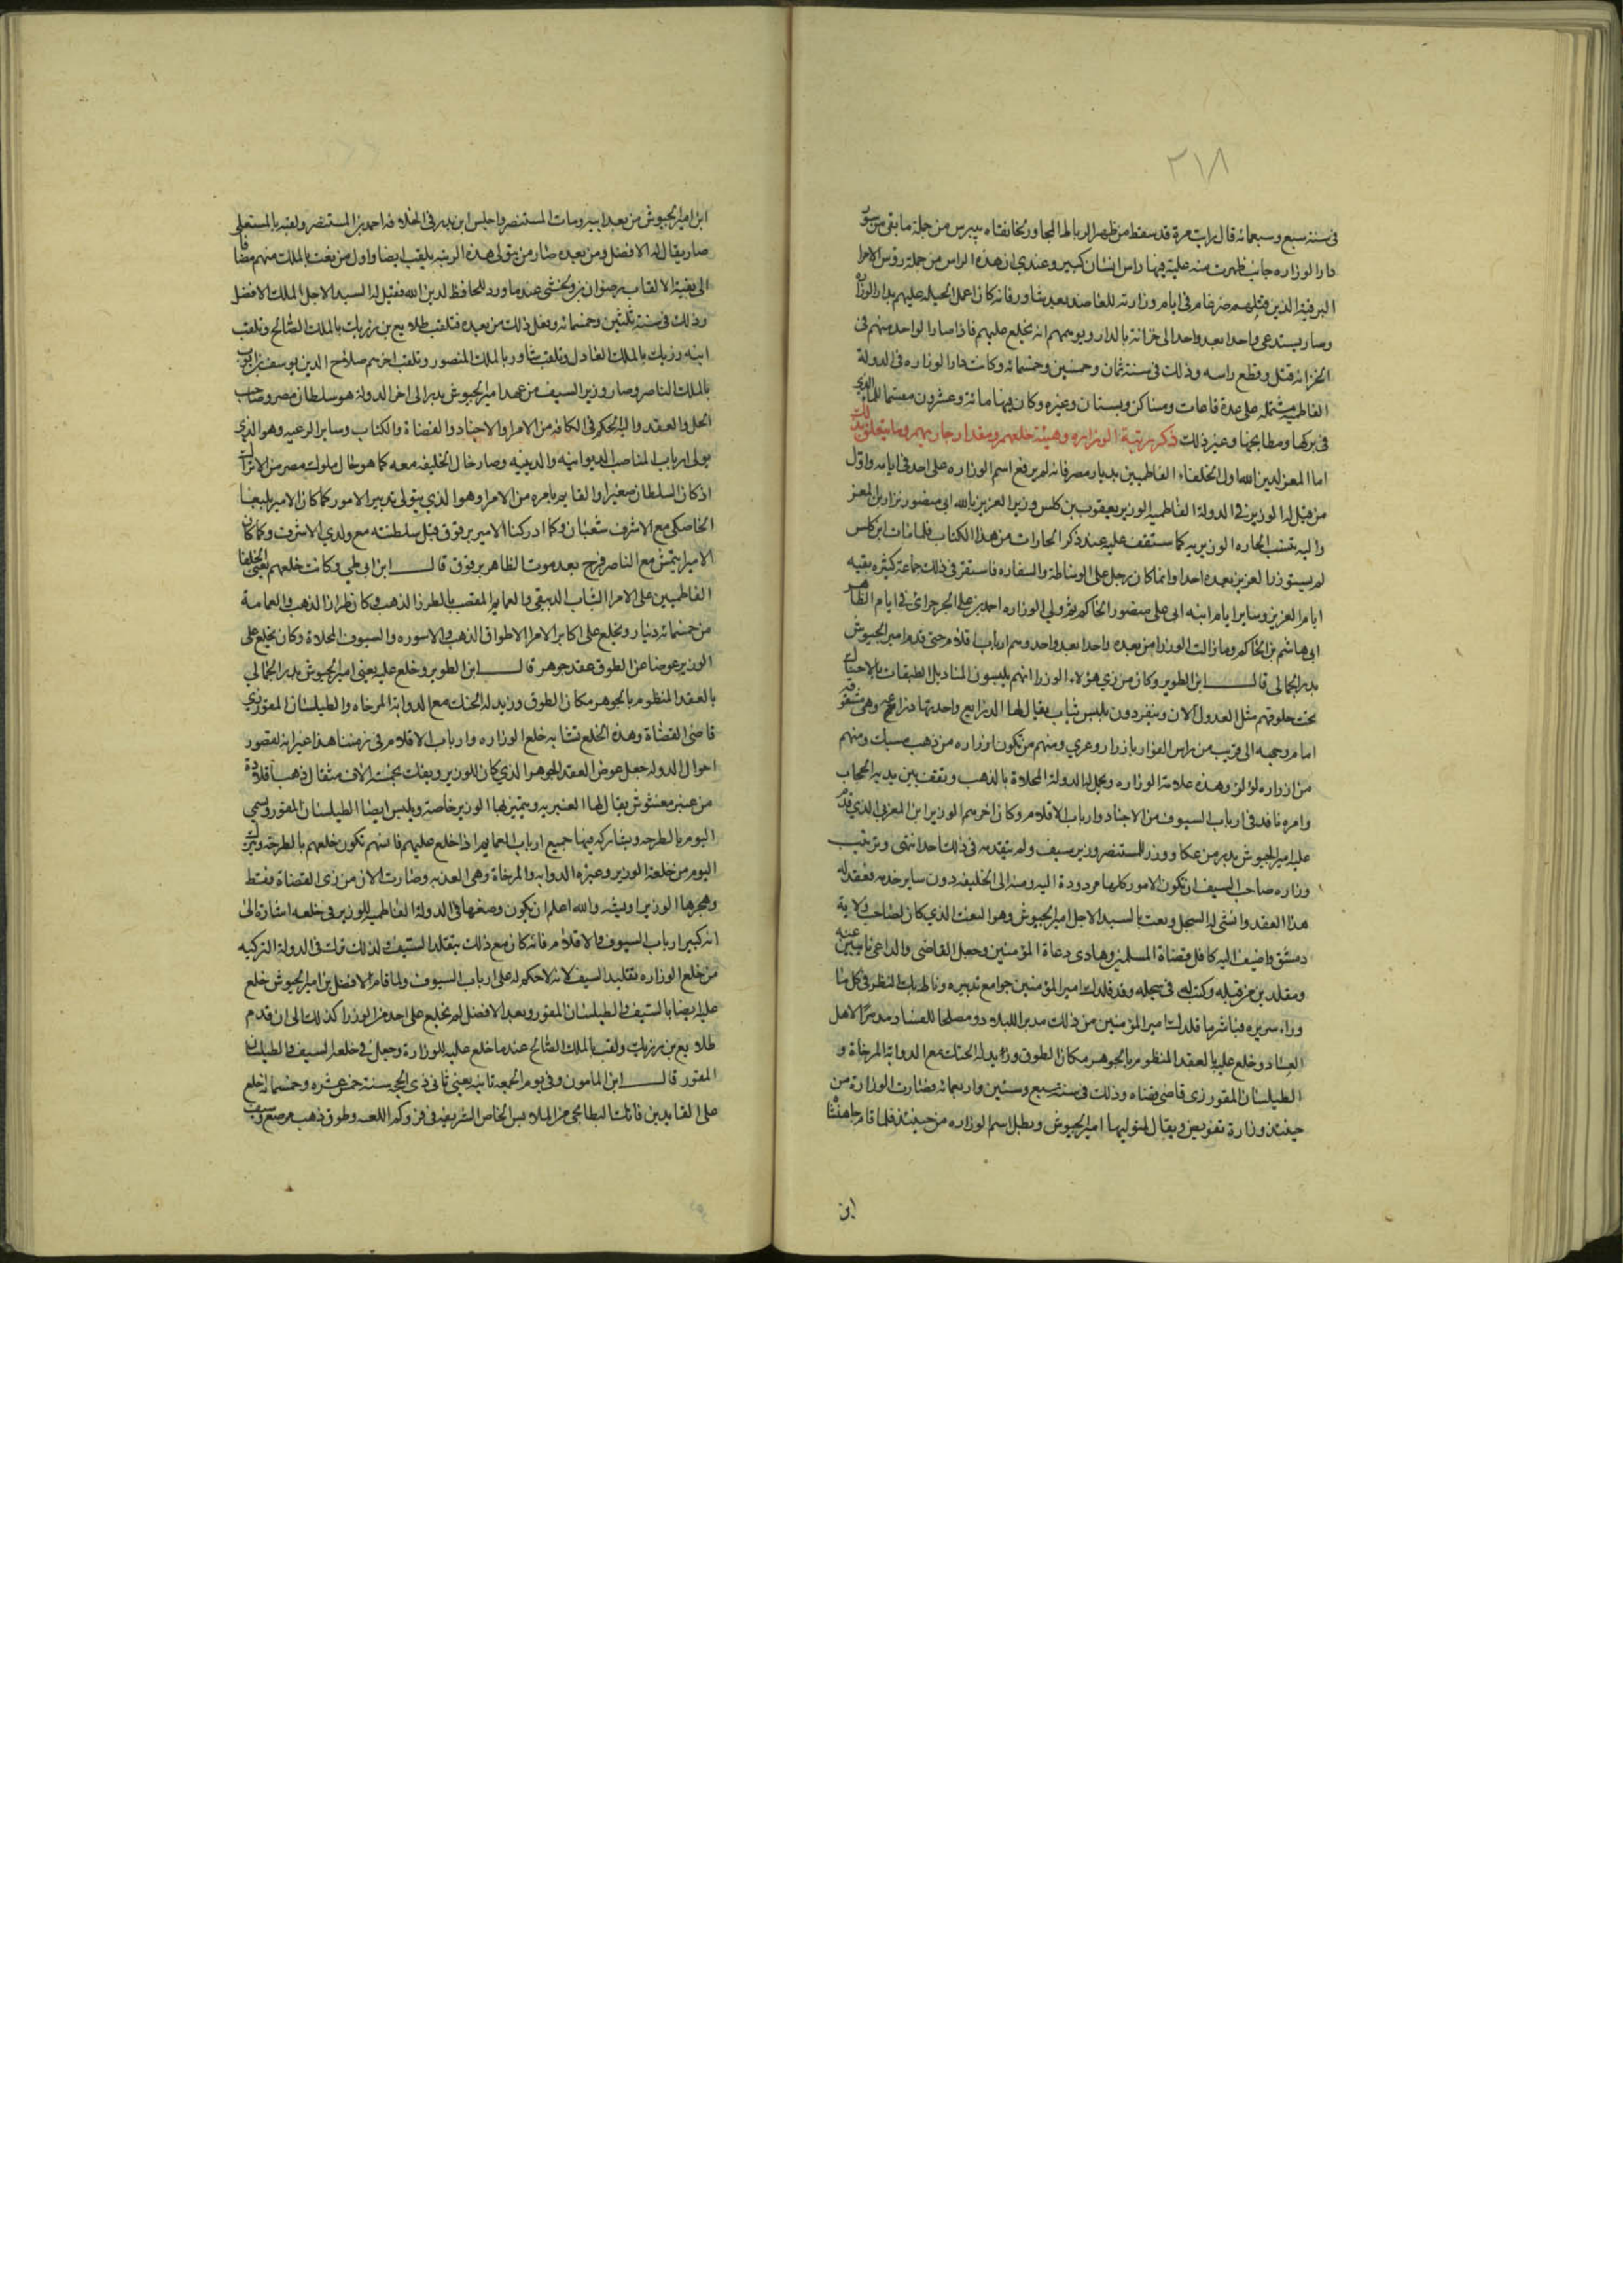 ٢١٨
فى سنة سبع وسبعمائه قال رايت مرة قد سقط من ظهر الرباط المجاور لخانقاه بيبرس من جملة ما بقى من سور
دار الوزاره جانب ظهرت منه علبة فيها راس انسان كبير وعندي ان هذه الراس من جملة روس الامرا
البرقية الذين قتلهم ضرغام فى ايام وزارته للعاضد بعد شاور فانه كان اعمل الحيله عليهم بدار الوزاره
وصار يستدعى واحدا بعد واحد الى خزانة بالدار ويوهمهم انه يخلع عليهم فاذا صار الواحد منهم فى
الخزانه قتل وقطع راسه وذلك فى سنة ثمان وخمسين وخمسمائه وكانت دار الوزاره فى الدولة
الفاطميه مشتمله على عدة قاعات ومساكن وبستان وغيره وكان فيها مائة وعشرون مقسما للماء الذي
فى بركها ومطابخها وغير ذلك ذكر رتبة الوزاره وهيئة خلعهم ومقدار جاريهم وما يتعلق بذلك
اما المعز لدين الله اول الخلفاء الفاطميين بديار مصر فانه لم يوقع اسم الوزاره على احد فى ايامه واول
من قيل له الوزير فى الدولة الفاطميه الوزير يعقوب بن كلس وزير العزيز بالله ابى منصور نزار بن المعز
واليه تنسب الحاره الوزيريه كما ستقف عليه عند ذكر الحارات من هذا الكتاب فلما مات ابن كلس
لم يستوزر العزيز بعده احدا وانما كان رجل على الوساطة والسفاره فاستقر فى ذلك جماعة كثيره بقيه
ايام العزيز وساير ايام ابنه ابى على منصور الحاكم ثم ولى الوزاره احمد بن على الجرجرائى فى ايام الظاهر
ابى هاشم بن الحاكم وما زالت الوزرا من بعده واحدا بعد واحد وهم ارباب اقلام حتى قدم امير الجيوش
بدر الجمالى قال ابن الطوير وكان من زي هؤلاء الوزرا انهم يلبسون المناديل الطبقات بالاحناك
تحت حلوقهم مثل العدول الآن وينفردون بلبس ثياب يقال لها الدراريع واحدتها دراعة وهى مشقوقه
امام وجهه الى قريب من راس الفؤاد بازرار وعري ومنهم من تكون ازراره من ذهب مسبك ومنهم
من ازراره لؤلؤ وهذه علامة الوزاره ويحمل له الدواة المحلاة بالذهب ويقف بين يديه الحجاب
وامره نافذ فى ارباب السيوف من الاجناد وارباب الاقلام وكان اخرهم الوزير ابن المغربى الذي قدم
عليه امير الجيوش بدر من عكا ووزر للمستنصر وزير سيف ولم يتقدمه فى ذلك احد انتهى وترتيب
وزاره صاحب السيف ان تكون الامور كلها مردودة اليه ومنه الى الخليفه دون ساير خدمه فعقد له
هذا العقد وانشى له السجل ونعت بالسيد الاجل امير الجيوش وهو النعت الذي كان لصاحب ولاية
دمشق واضيف اليه كافل قضاة المسلمين وهادى دعاة المؤمنين وجعل القاضى والداعى نايبين عنه
ومقلدين من قبله وكتب له فى سجله وقد قلدك امير المؤمنين جوامع تدبيره وناط بك النظر فى كل ما
وراء سريره فباشر ما قلدك امير المؤمنين من ذلك مدبرا للبلاد ومصلحا للفساد ومدمرا لاهل
العناد وخلع عليه بالعقد المنظوم بالجوهر مكان الطوق وزيد له الحنك مع الدوابة المرخاة و
الطيلسان المقور زى قاضى قضاه وذلك فى سنة سبع وستين واربعمائه فصارت الوزارة من
حينئذ وزارة تفويض ويقال لمتوليها امير الجيوش وبطل اسم الوزاره من حينئذ فلما قام شاهنشا
ابن
ابن امير الجيوش من بعد ابيه ومات المستنصر واجلس ابن بدر فى الخلافه احمد بن المستنصر ولقبه بالمستعلى
صار يقال له الافضل ومن بعده صار من يتولى هذه الرتبه يلقب ايضا واول من نعت بالملك منهم مضافا
الى بقية الالقاب رضوان بن ولخشى عندما وزر للحافظ لدين الله فقيل له السيد الاجل الملك الافضل
وذلك فى سنة ثلثين وخمسمائه وفعل ذلك من بعده فتلقب طلايع بن رزيك بالملك الصالح وتلقب
ابنه رزيك بالملك العادل وتلقب شاور بالملك المنصور وتلقب اخرهم صلاح الدين يوسف بن ايوب
بالملك الناصر وصار وزير السيف من عهد امير الجيوش بدر الى اخر الدولة هو سلطان مصر وصاحب
الحل والعقد واليه الحكم فى الكافه من الامرا والاجناد والقضاة والكتاب وساير الرعيه وهو الذي
يولى ارباب المناصب الديوانيه والدينيه وصار حال الخليفه معه كما هو حال ملوك مصر من الاتراك
اذ كان السلطان صغيرا والقايم بامره من الامرا وهو الذي يتولى تدبير الامور كما كان الامير يلبغا
الخاصكى مع الاشرف شعبان وكما ادركنا الامير برقوق قبل سلطنته مع ولدي الاشرف وكما كان
الامير ايتمش مع الناصر فرج بعد موت الظاهر برقوق قال ابن ابى طى وكانت خلعهم يعنى الخلفا
الفاطميين على الامرا الثياب الدبيقى والعمايم القصب بالطراز الذهب وكان طراز الذهب والعمامة
من خمسمائه دينار ويخلع على اكابر الامرا الاطواق الذهب والاسوره والسيوف المحلاة وكان يخلع على
الوزير عوضا عن الطوق عقد جوهر قال ابن الطوير وخلع عليه يعنى امير الجيوش بدر الجمالي
بالعقد المنظوم بالجوهر مكان الطوق وزيد له الحنك مع الدوابة المرخاه والطيلسان المقور زي
قاضى القضاة وهذه الخلع تشابه خلع الوزاره وارباب الاقلام فى زمننا هذا غير انه لقصور
احوال الدوله جعل عوض العقد الجوهر الذي كان للوزير ويفك بخمسة الاف مثقال ذهبا قلادة
من عنبر مغشوش يقال لها العنبريه ويتميز بها الوزير خاصة ويلبس ايضا الطيلسان المقور ويسمي
اليوم بالطرحه ويشاركه فيها جميع ارباب العمايم اذا خلع عليهم فانهم تكون خلعهم بالطرحة وترك
اليوم من خلعة الوزير وغيره الدوابه والمرخاة وهى العذبه وصارت الان من زى القضاة فقط
وهجرها الوزير ويشبه والله اعلم ان يكون وضعها فى الدولة الفاطميه للوزير فى خلعه اشارة الى
انه كبير ارباب السيوف والاقلام فانه كان مع ذلك يتقلد السيف ولذلك ترك فى الدولة التركيه
من خلع الوزاره تقليد السيف لانه لاحكم له على ارباب السيوف ولما قام الافضل بن امير الجيوش خلع
عليه ايضا بالسيف والطيلسان المقور وبعد الافضل لم يخلع على احد من الوزرا كذلك الى ان قدم
طلايع بن رزيك ولقب بالملك الصالح عندما خلع عليه للوزارة وجعل فى خلعه السيف والطيلسان
المقور قال ابن المامون وفى يوم الجمعه ثانيه يعني ثانى ذى الحجه سنة خمس عشره وخمسمائه خلع
على القايد بن فاتك البطايحى من الملابس الخاص الشريفه فى فرد كم اللعه وطوق ذهب مرصع وسيف